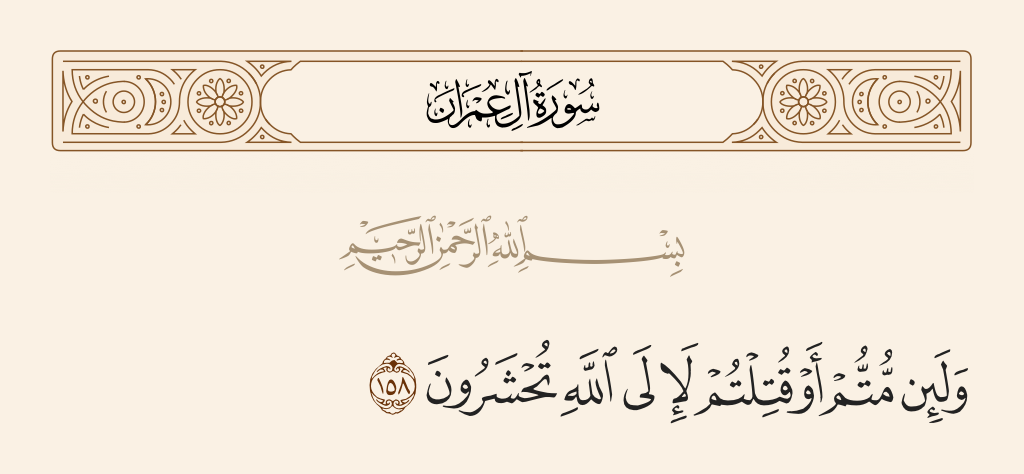 سُورَةُ آلِ عِمْرَانَ
بِسْمِ ٱللَّهِ ٱلرَّحْمَٰنِ ٱلرَّحِيمِ
وَلَئِن مُّتُّمْ أَوْ قُتِلْتُمْ لَإِلَى ٱللَّهِ تُحْشَرُونَ ١٥٨